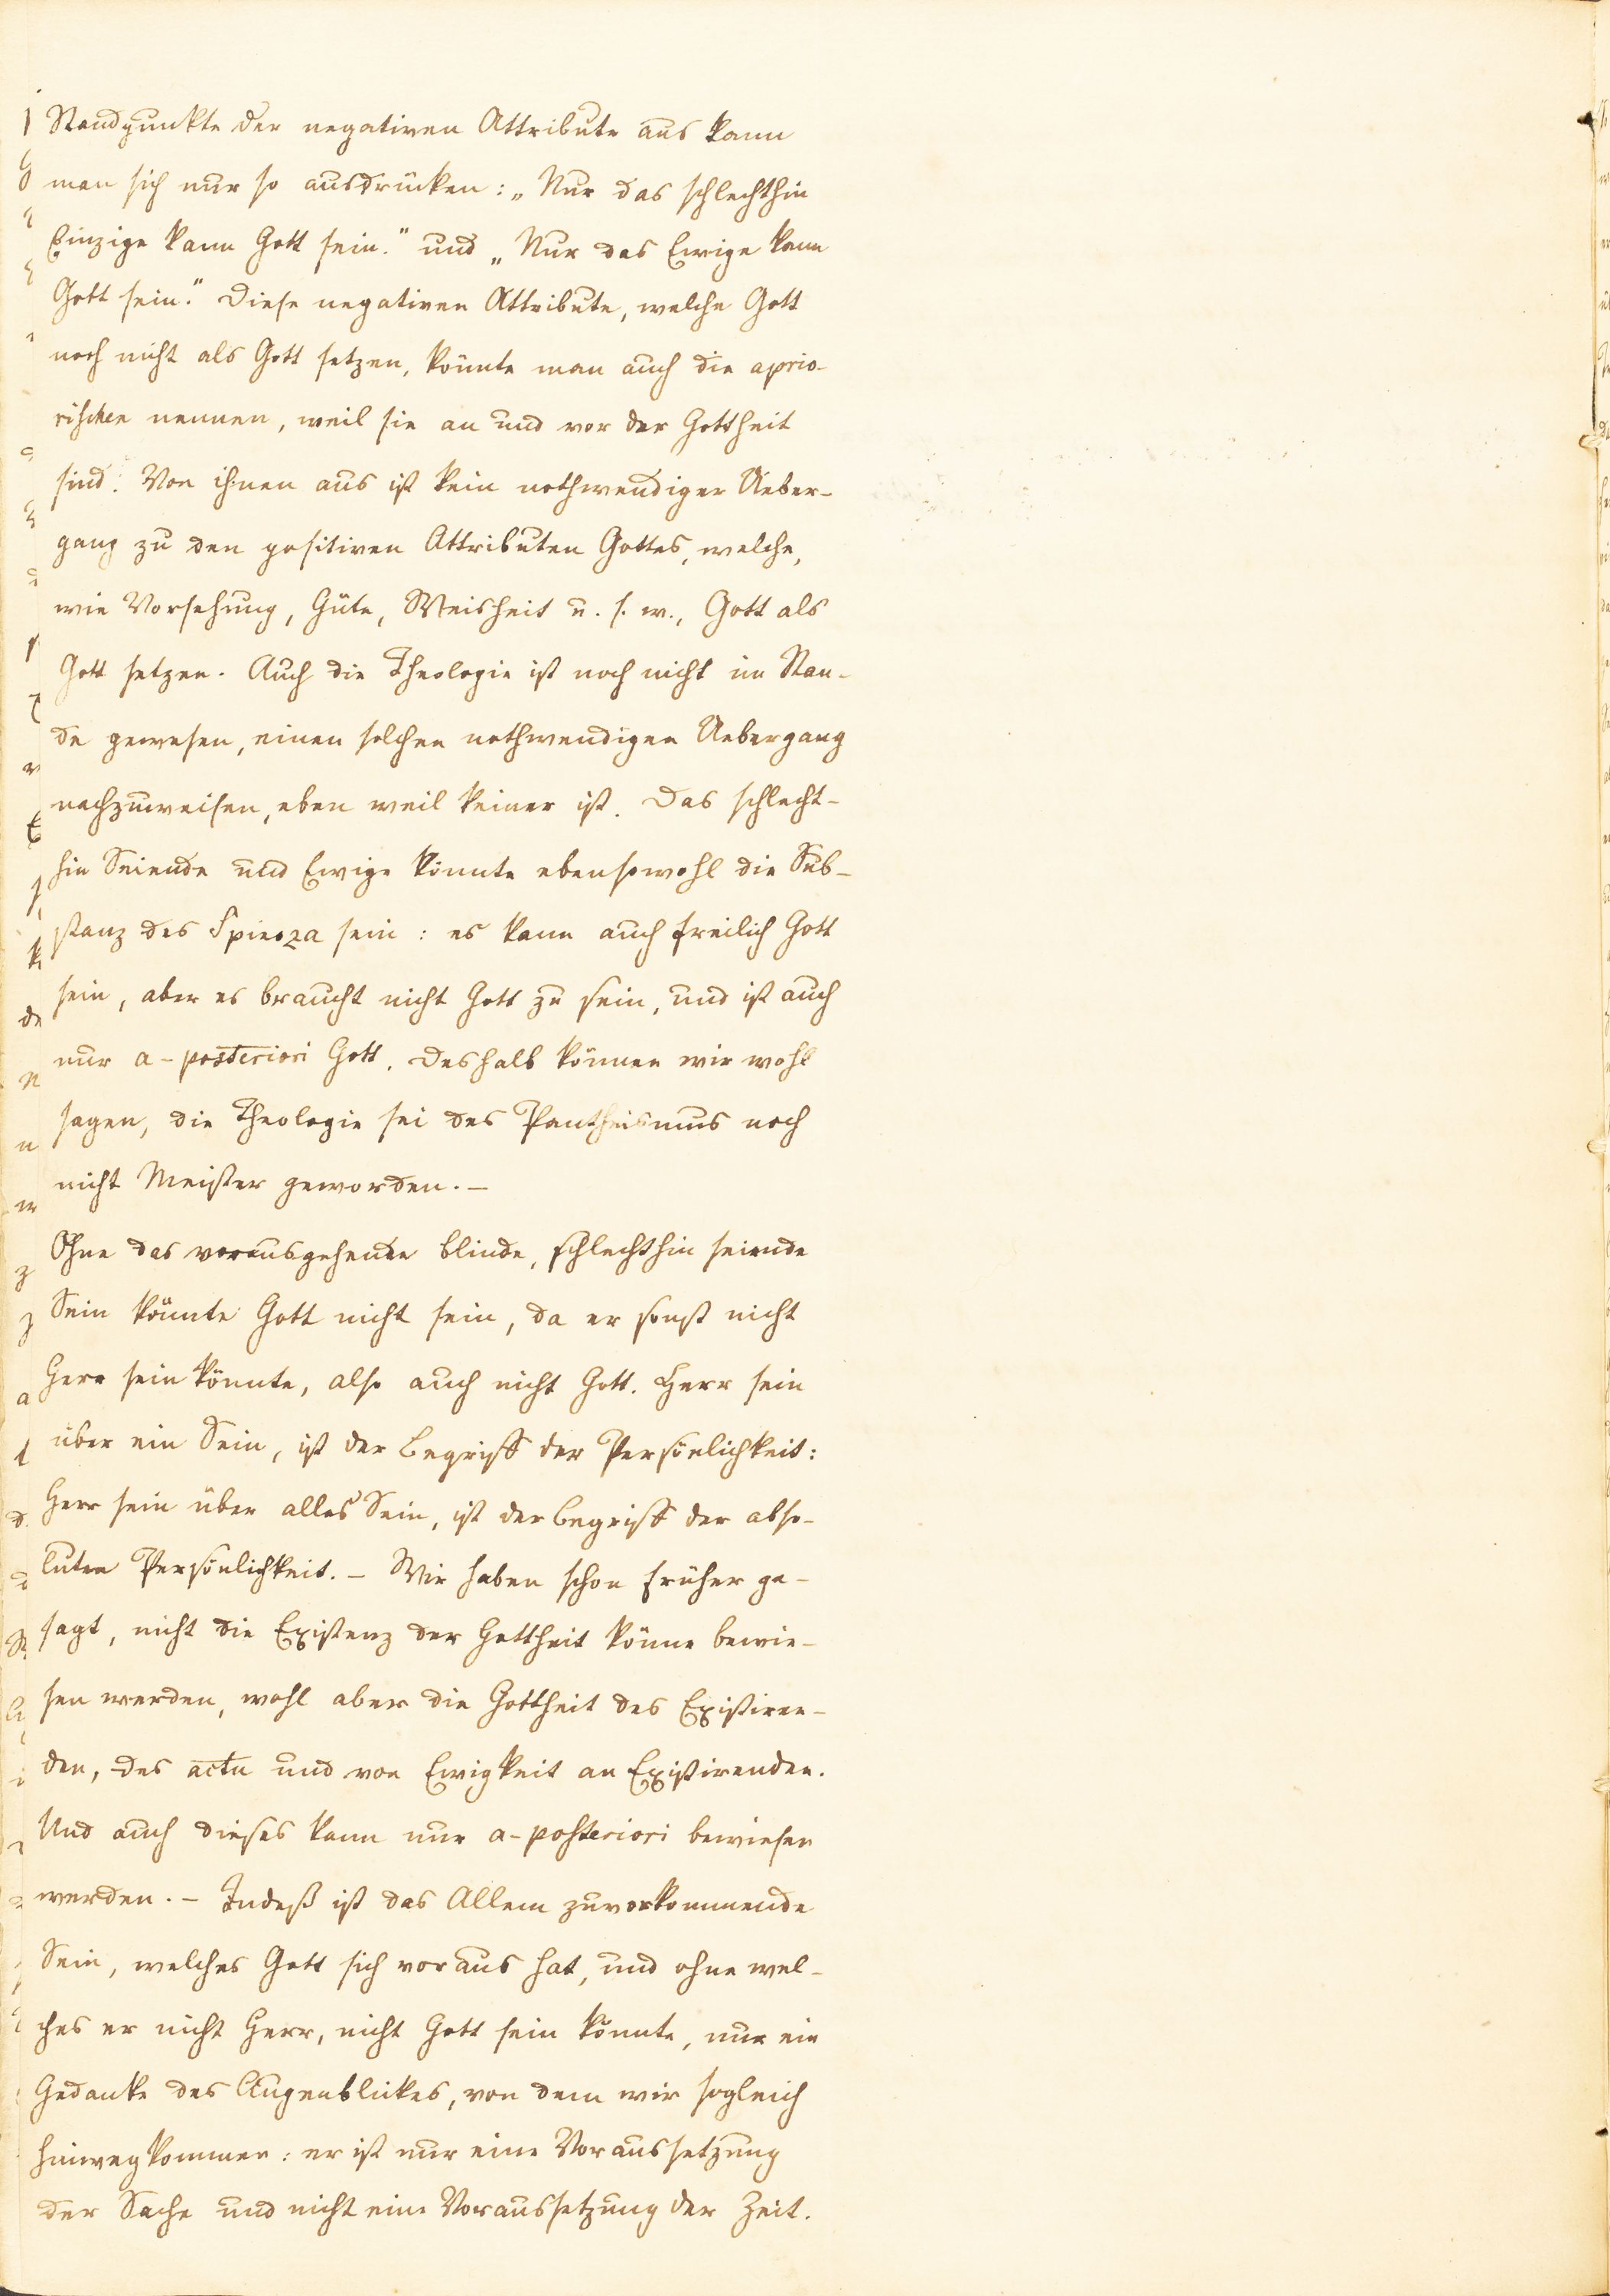 Standpunkte der negativen Attribute aus kann
man sich nur so ausdrücken: „Nur das schlechthin
Einzige kann Gott sein.“ und „Nur das Ewige kann
Gott sein.“ Diese negativen Attribute, welche Gott
noch nicht als Gott setzen, könnte man auch die aprio-
rischen nennen, weil sie an und vor der Gottheit
sind. Von ihnen aus ist kein nothwendiger Ueber-
gang zu den positiven Attributen Gottes, welche,
wie Vorsehung, Güte, Weisheit u. s. w., Gott als
Gott setzen. Auch die Theologie ist noch nicht im Stan-
de gewesen, einen solchen nothwendigen Uebergang
nachzuweisen, eben weil keiner ist. Das schlecht-
hin Seiende und Ewige könnte ebensowohl die Sub-
stanz des Spinoza sein: es kann auch freilich Gott
sein, aber es braucht nicht Gott zu sein, und ist auch
nur a-posteriori Gott. Deshalb können wir wohl
sagen, die Theologie sei des Pantheismus noch
nicht Meister geworden. –
Ohne das vorausgehende blinde, schlechthin seiende
Sein könnte Gott nicht sein, da er sonst nicht
Herr sein könnte, also auch nicht Gott. Herr sein
über ein Sein, ist der Begriff der Persönlichkeit:
Herr sein über alles Sein, ist der Begriff der abso-
luten Persönlichkeit. – Wir haben schon früher ge-
sagt, nicht die Existenz der Gottheit könne bewie-
sen werden, wohl aber die Gottheit des Existiren-
den, des actu und von Ewigkeit an Existirenden.
Und auch dieses kann nur a-posteriori bewiesen
werden. – Indeß ist das Allem zuvorkommende
Sein, welches Gott sich voraus hat, und ohne wel-
ches er nicht Herr, nicht Gott sein könnte, nur ein
Gedanke des Augenblickes, von dem wir sogleich
hinwegkommen: er ist nur eine Voraussetzung
der Sache und nicht eine Voraussetzung der Zeit.